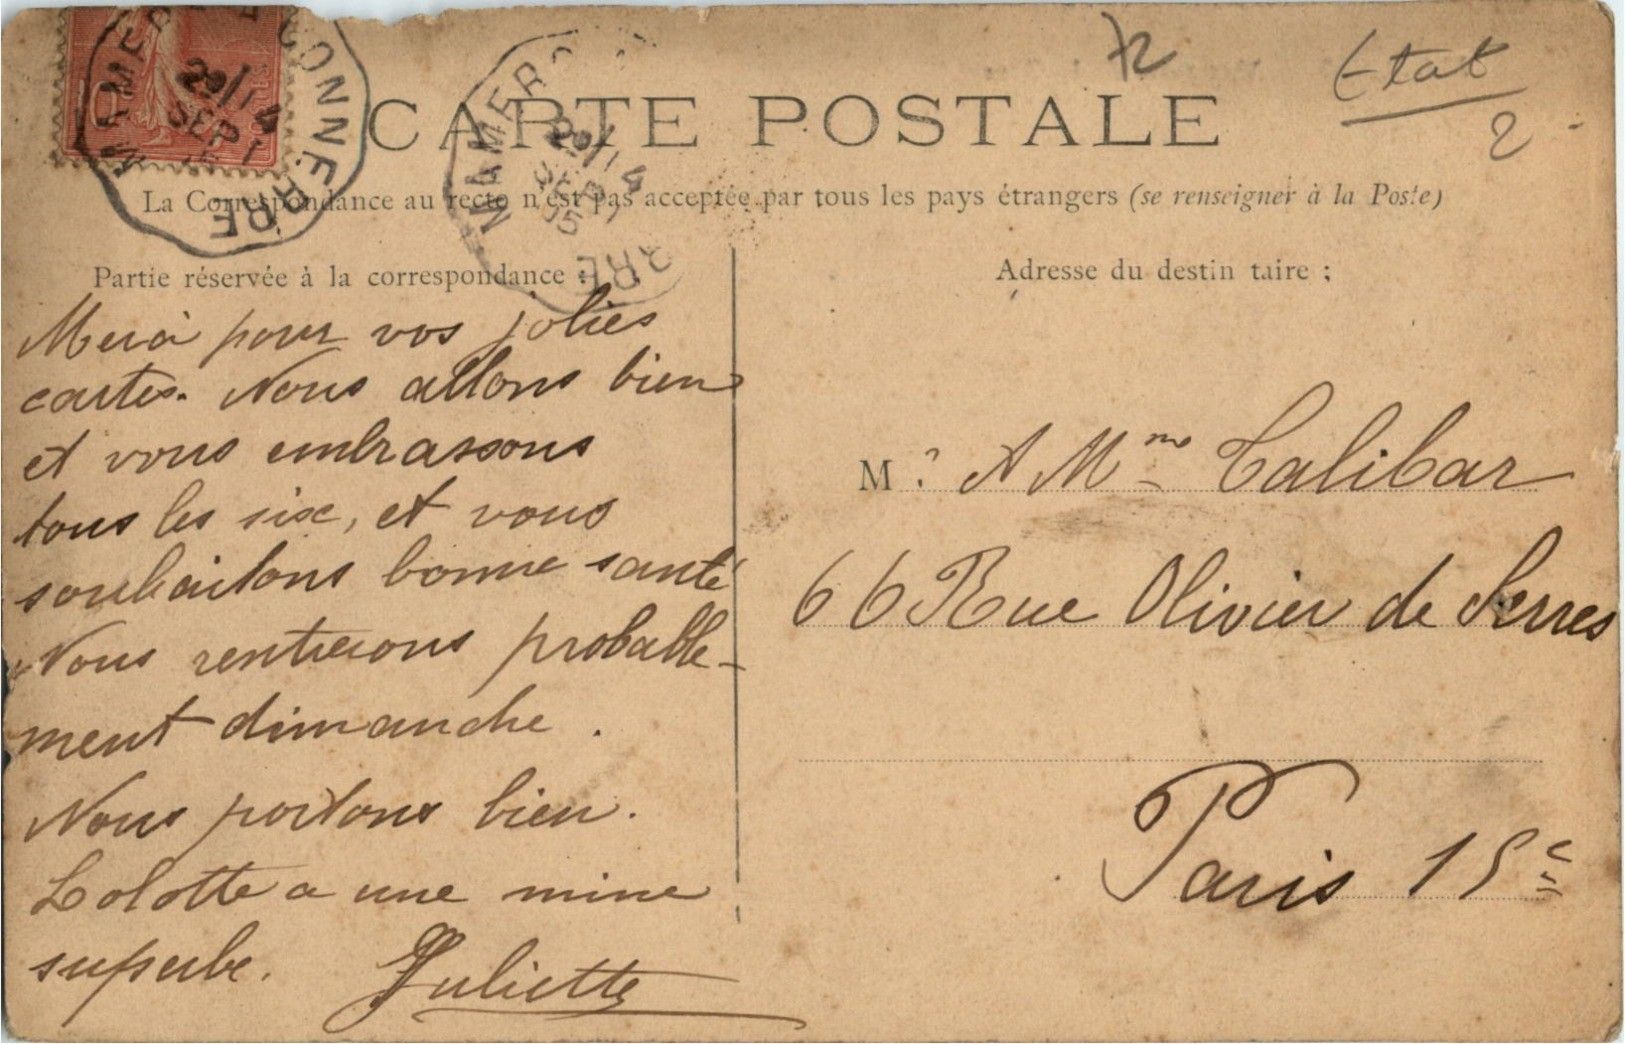 CARTE POSTALE
72
Etat
2
La Correspondance au recto n'est pas acceptée par tous les pays étrangers (se renseigner à la Poste)
MAMERS A CONNERRE
29/14
SEPT
MAMERS
29/14
SEPT
05
RRE
Partie réservée à la correspondance :
Merci pour vos jolies
cartes. Nous allons bien
et vous embrassons
tous les six, et vous
souhaitons bonne santé
Nous rentrerons probable-
ment dimanche.
Nous portons bien.
Lolotte a une mine
superbe. Juliette
Adresse du destin taire :
M. A Mme Calibar
66 Rue Olivier de Serres
Paris 15e